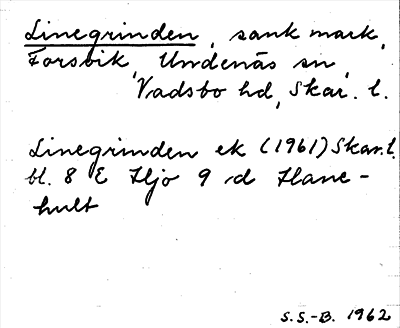 Linegrinden, sank mark,
Forsvik, Undenäs sn,
Vadsbo hd, Skar. l.
Linegrinden ek (1961) Skar. l.
bl. 8 E Hjo 9 d Hane-
hult
S.S.-B. 1962